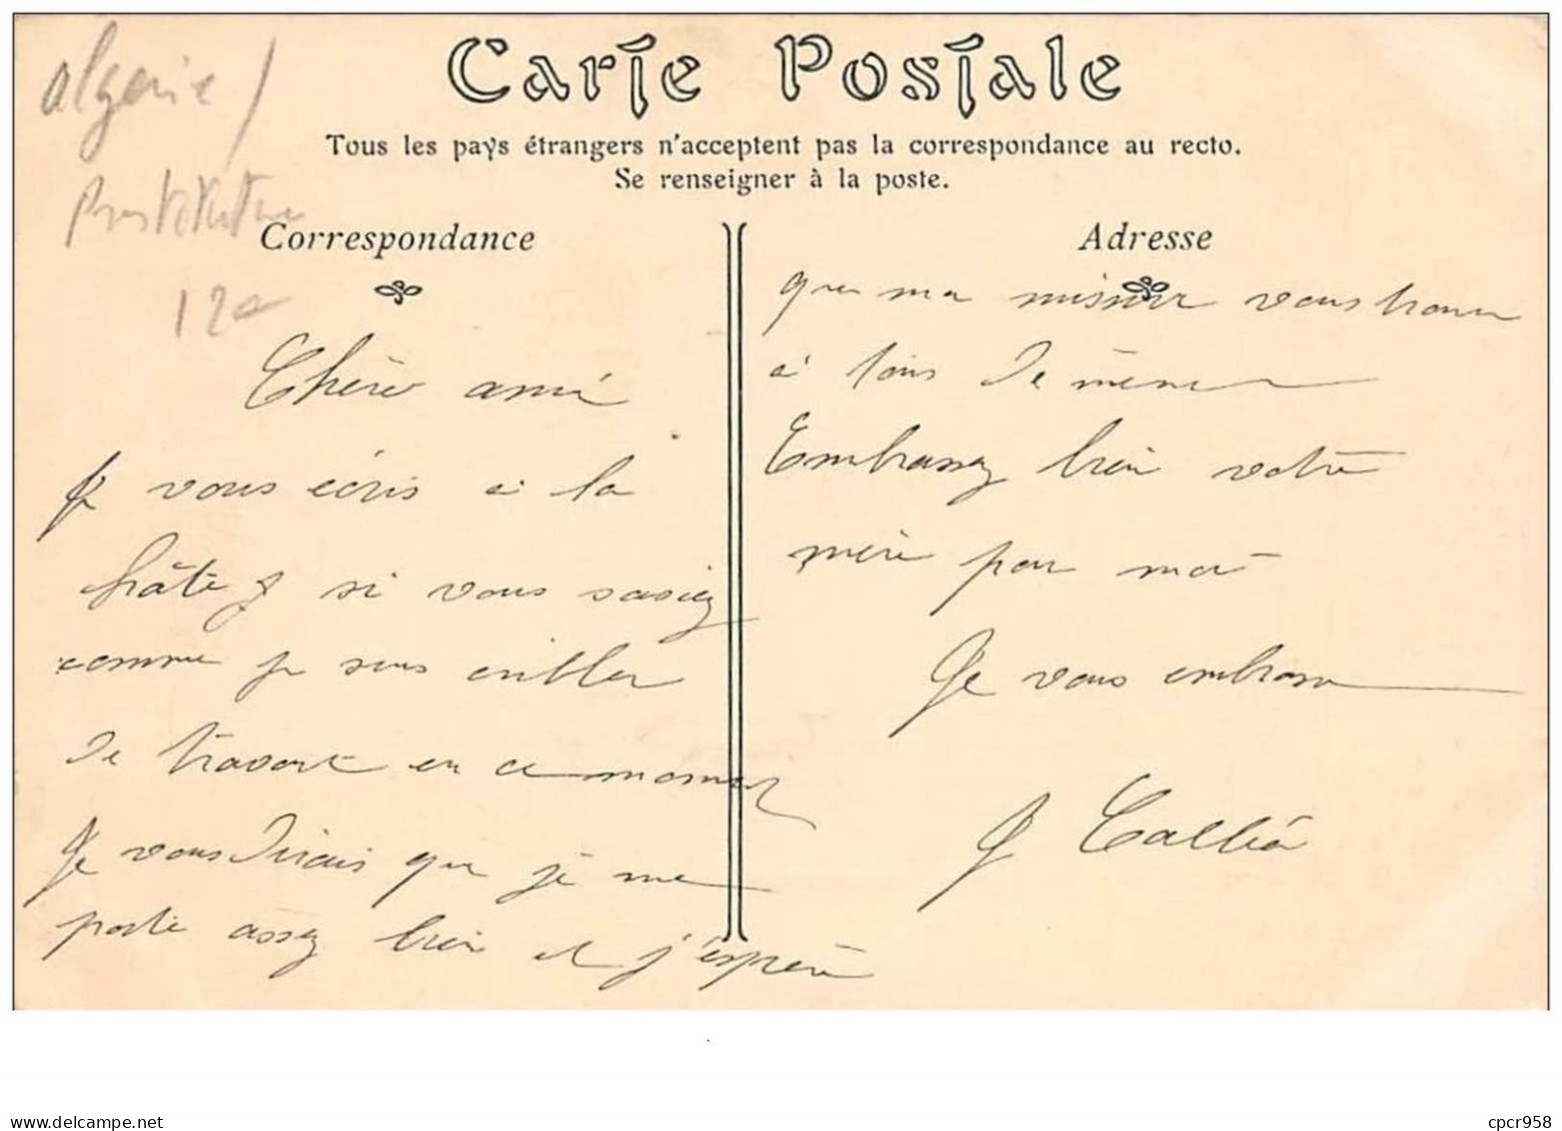 Algérie /
Prostitution
12€
Carte Postale
Tous les pays étrangers n'acceptent pas la correspondance au recto.
Se renseigner à la poste.
Correspondance
Chère amie
Je vous écris à la
hâte si vous saviez
comme je suis
de travail en ce moment
Je vous dirais que je me
porte assez bien et j'espère
Adresse
que ma vous trouve
à tous de même
Embrassez bien votre
mère pour moi
Je vous embrasse
www.delcampe.net
cpcr958